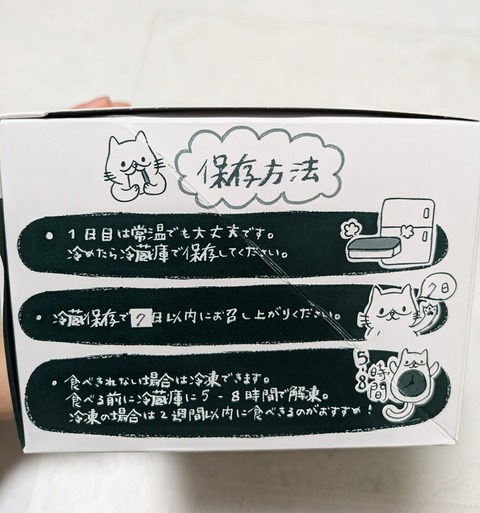 保存方法
• 1日目は常温でも大丈夫です。
冷めたら冷蔵庫で保存してください。
• 冷蔵保存で7日以内にお召し上がりください。
7日
• 食べきれない場合は冷凍できます。
食べる前に冷蔵庫に5-8時間で解凍。
冷凍の場合は2週間以内に食べきるのがおすすめ!
5-8時間